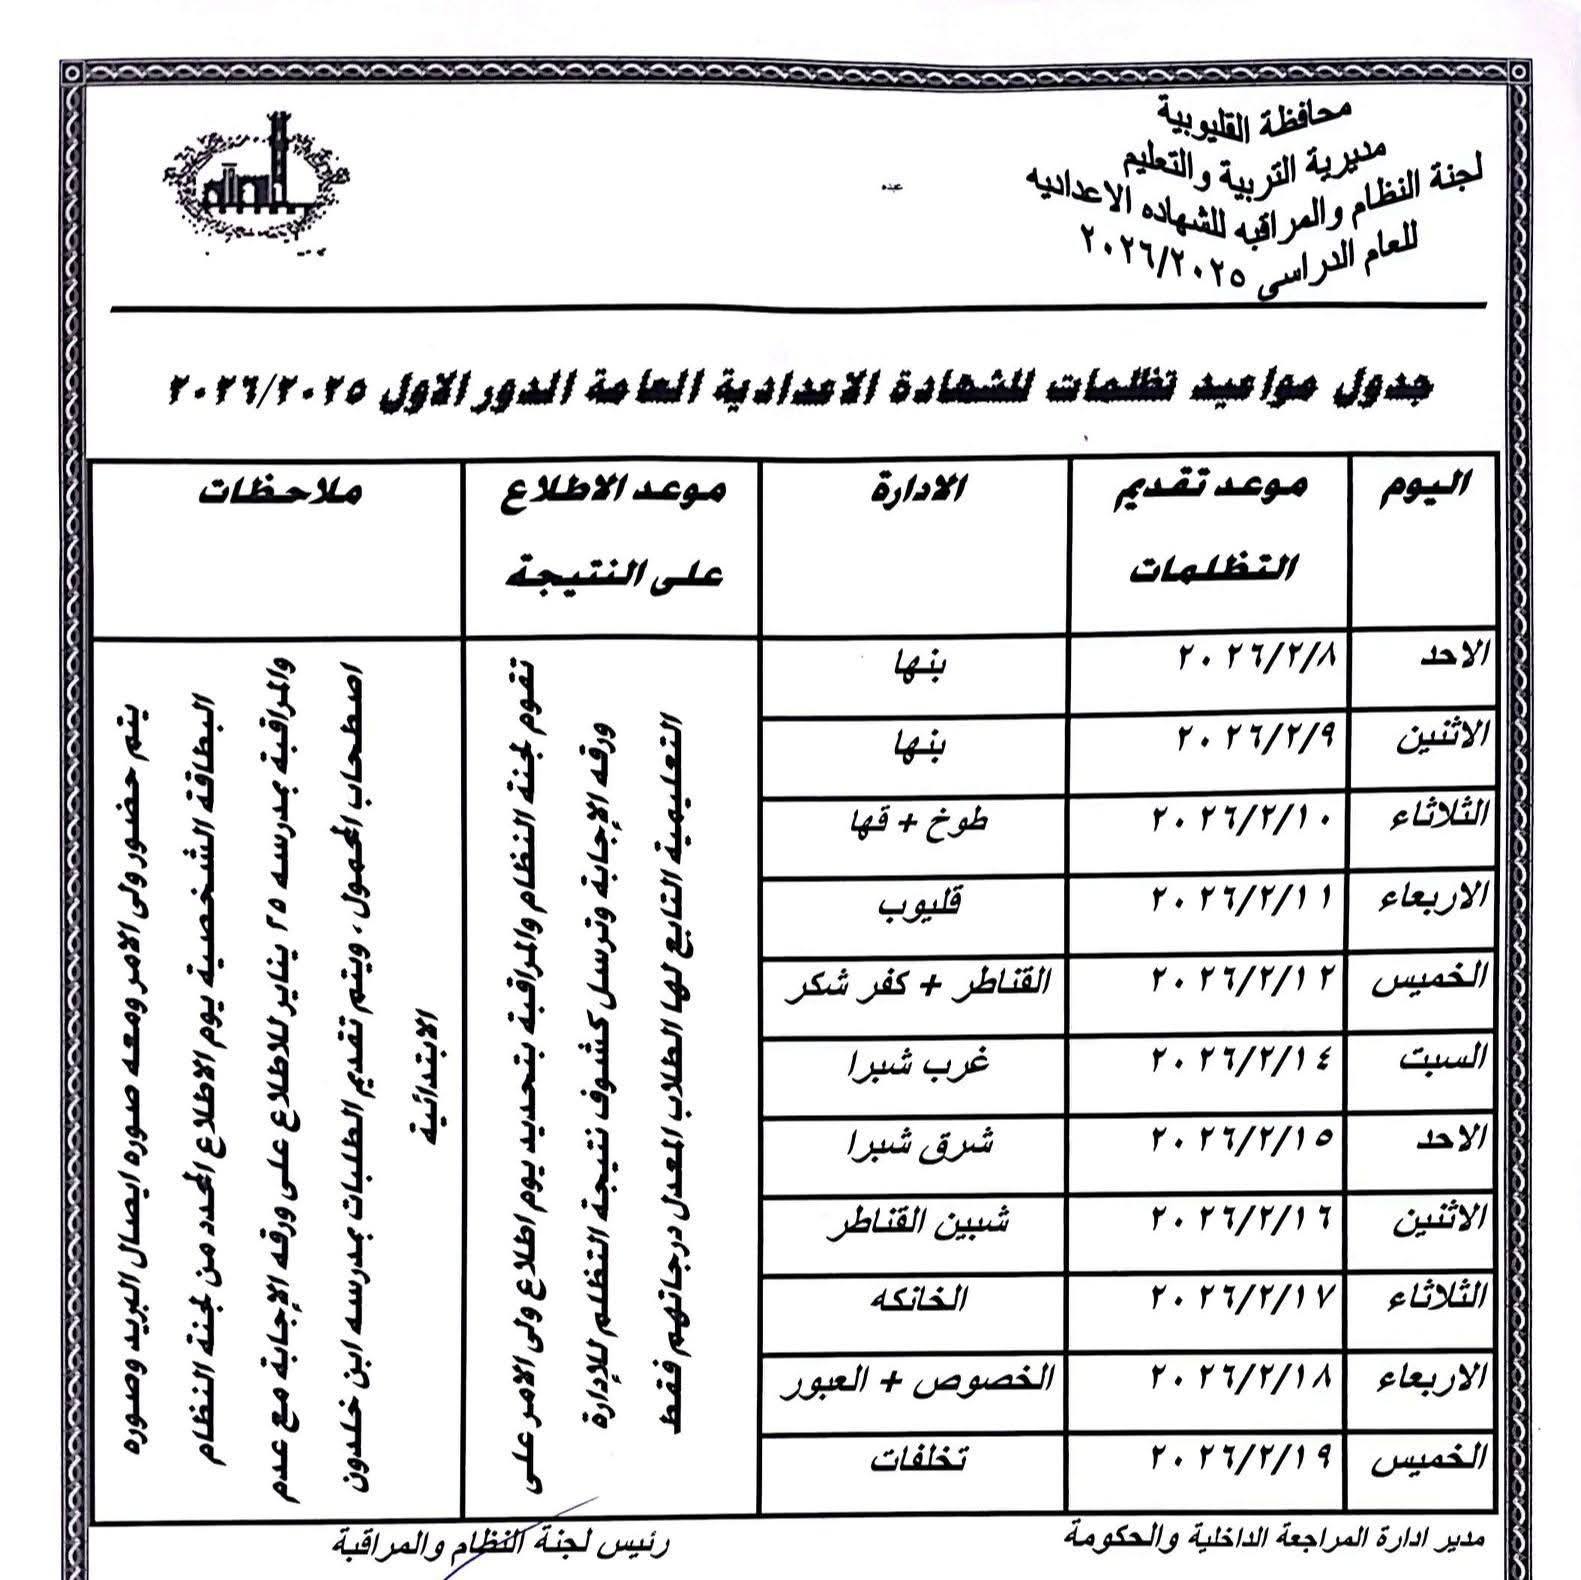 محافظة القليوبية
مديرية التربية والتعليم
لجنة النظام والمراقبه للشهاده الاعداديه
للعام الدراسى ٢٠٢٦/٢٠٢٥
جدول مواعيد تظلمات للشهادة الاعدادية العامة الدور الاول ٢٠٢٦/٢٠٢٥
اليوم موعد تقديم التظلمات الادارة موعد الاطلاع على النتيجة ملاحظات
الاحد ٢٠٢٦/٢/٨ بنها
الاثنين ٢٠٢٦/٢/٩ بنها
الثلاثاء ٢٠٢٦/٢/١٠ طوخ + قها
الاربعاء ٢٠٢٦/٢/١١ قليوب
الخميس ٢٠٢٦/٢/١٢ القناطر + كفر شكر
السبت ٢٠٢٦/٢/١٤ غرب شبرا
الاحد ٢٠٢٦/٢/١٥ شرق شبرا
الاثنين ٢٠٢٦/٢/١٦ شبين القناطر
الثلاثاء ٢٠٢٦/٢/١٧ الخانكه
الاربعاء ٢٠٢٦/٢/١٨ الخصوص + العبور
الخميس ٢٠٢٦/٢/١٩ تخلفات
تقوم لجنة النظام والمراقبة بتحديد يوم اطلاع ولى الامر على
ورقه الإجابة وترسل كشوف نتيجة التظلم للإدارة
التعليمية التابع لها الطلاب المعدل درجاتهم فقط
يتم حضور ولى الامر ومعه صوره ايصال البريد وصوره
البطاقة الشخصية يوم الاطلاع المحدد من لجنة النظام
والمراقبة بمدرسه ٢٥ يناير للاطلاع على ورقه الإجابة مع عدم
اصطحاب المحمول، ويتم تقديم الطلبات بمدرسه ابن خلدون
الابتدائية
مدير ادارة المراجعة الداخلية والحكومة
رئيس لجنة النظام والمراقبة